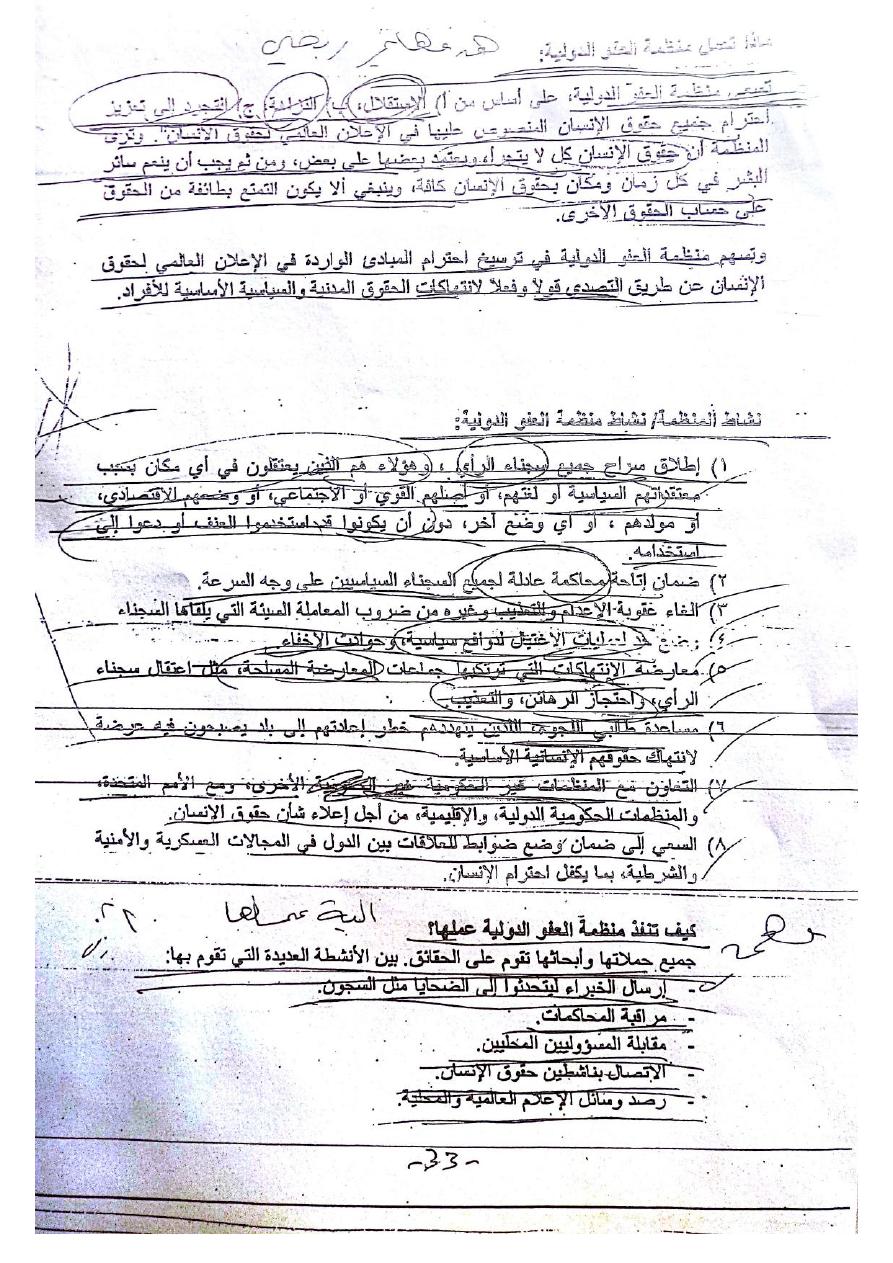 ماذا تعمل منظمة العفو الدولية:
تسعى منظمة العفو الدولية، على أساس من أ) الإستقلال، ب) النزاهة، ج) التجرد إلى تعزيز
احترام جميع حقوق الإنسان المنصوص عليها في الإعلان العالمي لحقوق الإنسان". وترى
المنظمة أن حقوق الإنسان كل لا يتجزأ، ويعتمد بعضها على بعض، ومن ثم يجب أن ينعم سائر
البشر في كل زمان ومكان بحقوق الإنسان كافة، وينبغي ألا يكون التمتع بطائفة من الحقوق
على حساب الحقوق الأخرى.
وتسهم منظمة العفو الدولية في ترسيخ احترام المبادئ الواردة في الإعلان العالمي لحقوق
الإنسان عن طريق التصدي قولاً وفعلاً لانتهاكات الحقوق المدنية والسياسية الأساسية للأفراد.
نشاط المنظمة/ نشاط منظمة العفو الدولية:
١) إطلاق سراح جميع سجناء الرأي، وهؤلاء هم الذين يعتقلون في أي مكان بسبب
معتقداتهم السياسية أو لغتهم، أو أصلهم القومي أو الاجتماعي، أو وضعهم الاقتصادي،
أو مولدهم ، أو أي وضع آخر، دون أن يكونوا قد استخدموا العنف أو دعوا إلى
استخدامه.
٢) ضمان إتاحة محاكمة عادلة لجميع السجناء السياسيين على وجه السرعة.
٣) الغاء عقوبة الإعدام والتعذيب وغيره من ضروب المعاملة السيئة التي يلقاها السجناء
٤) وضع حد لعمليات الاغتيال لدوافع سياسية، وحوادث الاخفاء.
٥) معارضة الإنتهاكات التي ترتكبها جماعات المعارضة المسلحة، مثل اعتقال سجناء
الرأي، واحتجاز الرهائن، والتعذيب.
٦) مساعدة طالبي اللجوء، اللذين يتهددهم خطر إعادتهم إلى بلد يصبحون فيه عرضة
لانتهاك حقوقهم الإنسانية الأساسية.
٧) التعاون مع المنظمات غير الحكومية الأخرى، ومع الأمم المتحدة،
والمنظمات الحكومية الدولية، والإقليمية، من أجل إعلاء شأن حقوق الإنسان.
٨) السعي إلى ضمان وضع ضوابط للعلاقات بين الدول في المجالات العسكرية والأمنية
والشرطية، بما يكفل احترام الإنسان.
الية عملها
كيف تنفذ منظمة العفو الدولية عملها؟
جميع حملاتها وأبحاثها تقوم على الحقائق. بين الأنشطة العديدة التي تقوم بها:
- إرسال الخبراء ليتحدثوا إلى الضحايا مثل السجون.
- مراقبة المحاكمات.
- مقابلة المسؤوليين المحليين.
- الإتصال بناشطين حقوق الإنسان.
- رصد وسائل الإعلام العالمية والمحلية.
-33-